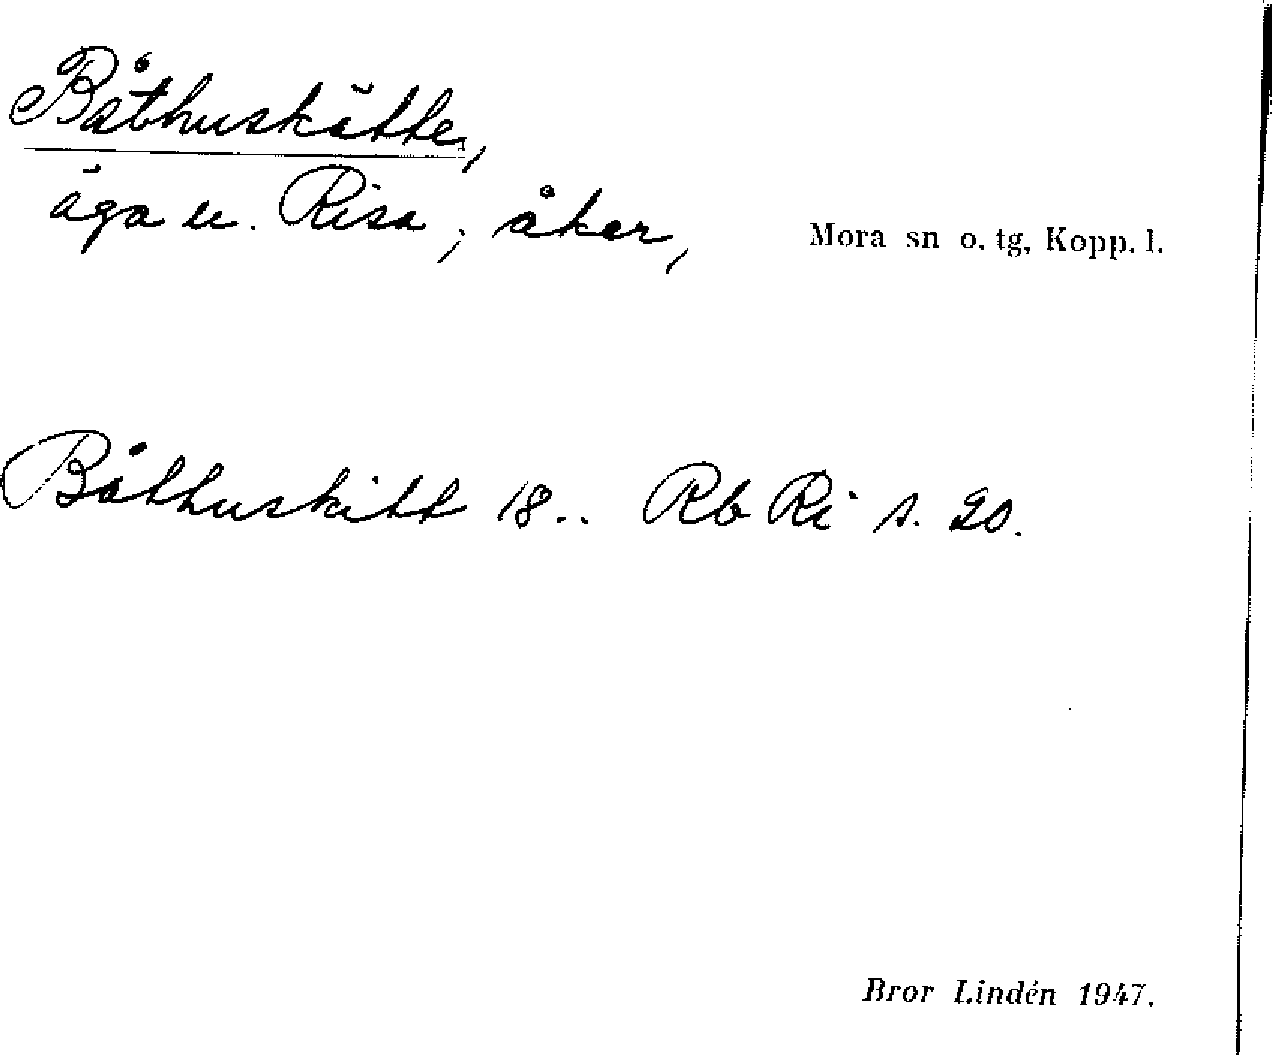 Båthuskätte,
äga u. Risa; åker,
Mora sn o. tg, Kopp. l.
Båthuskitt 18.. Rb Ri s. 20.
Bror Lindén 1947.